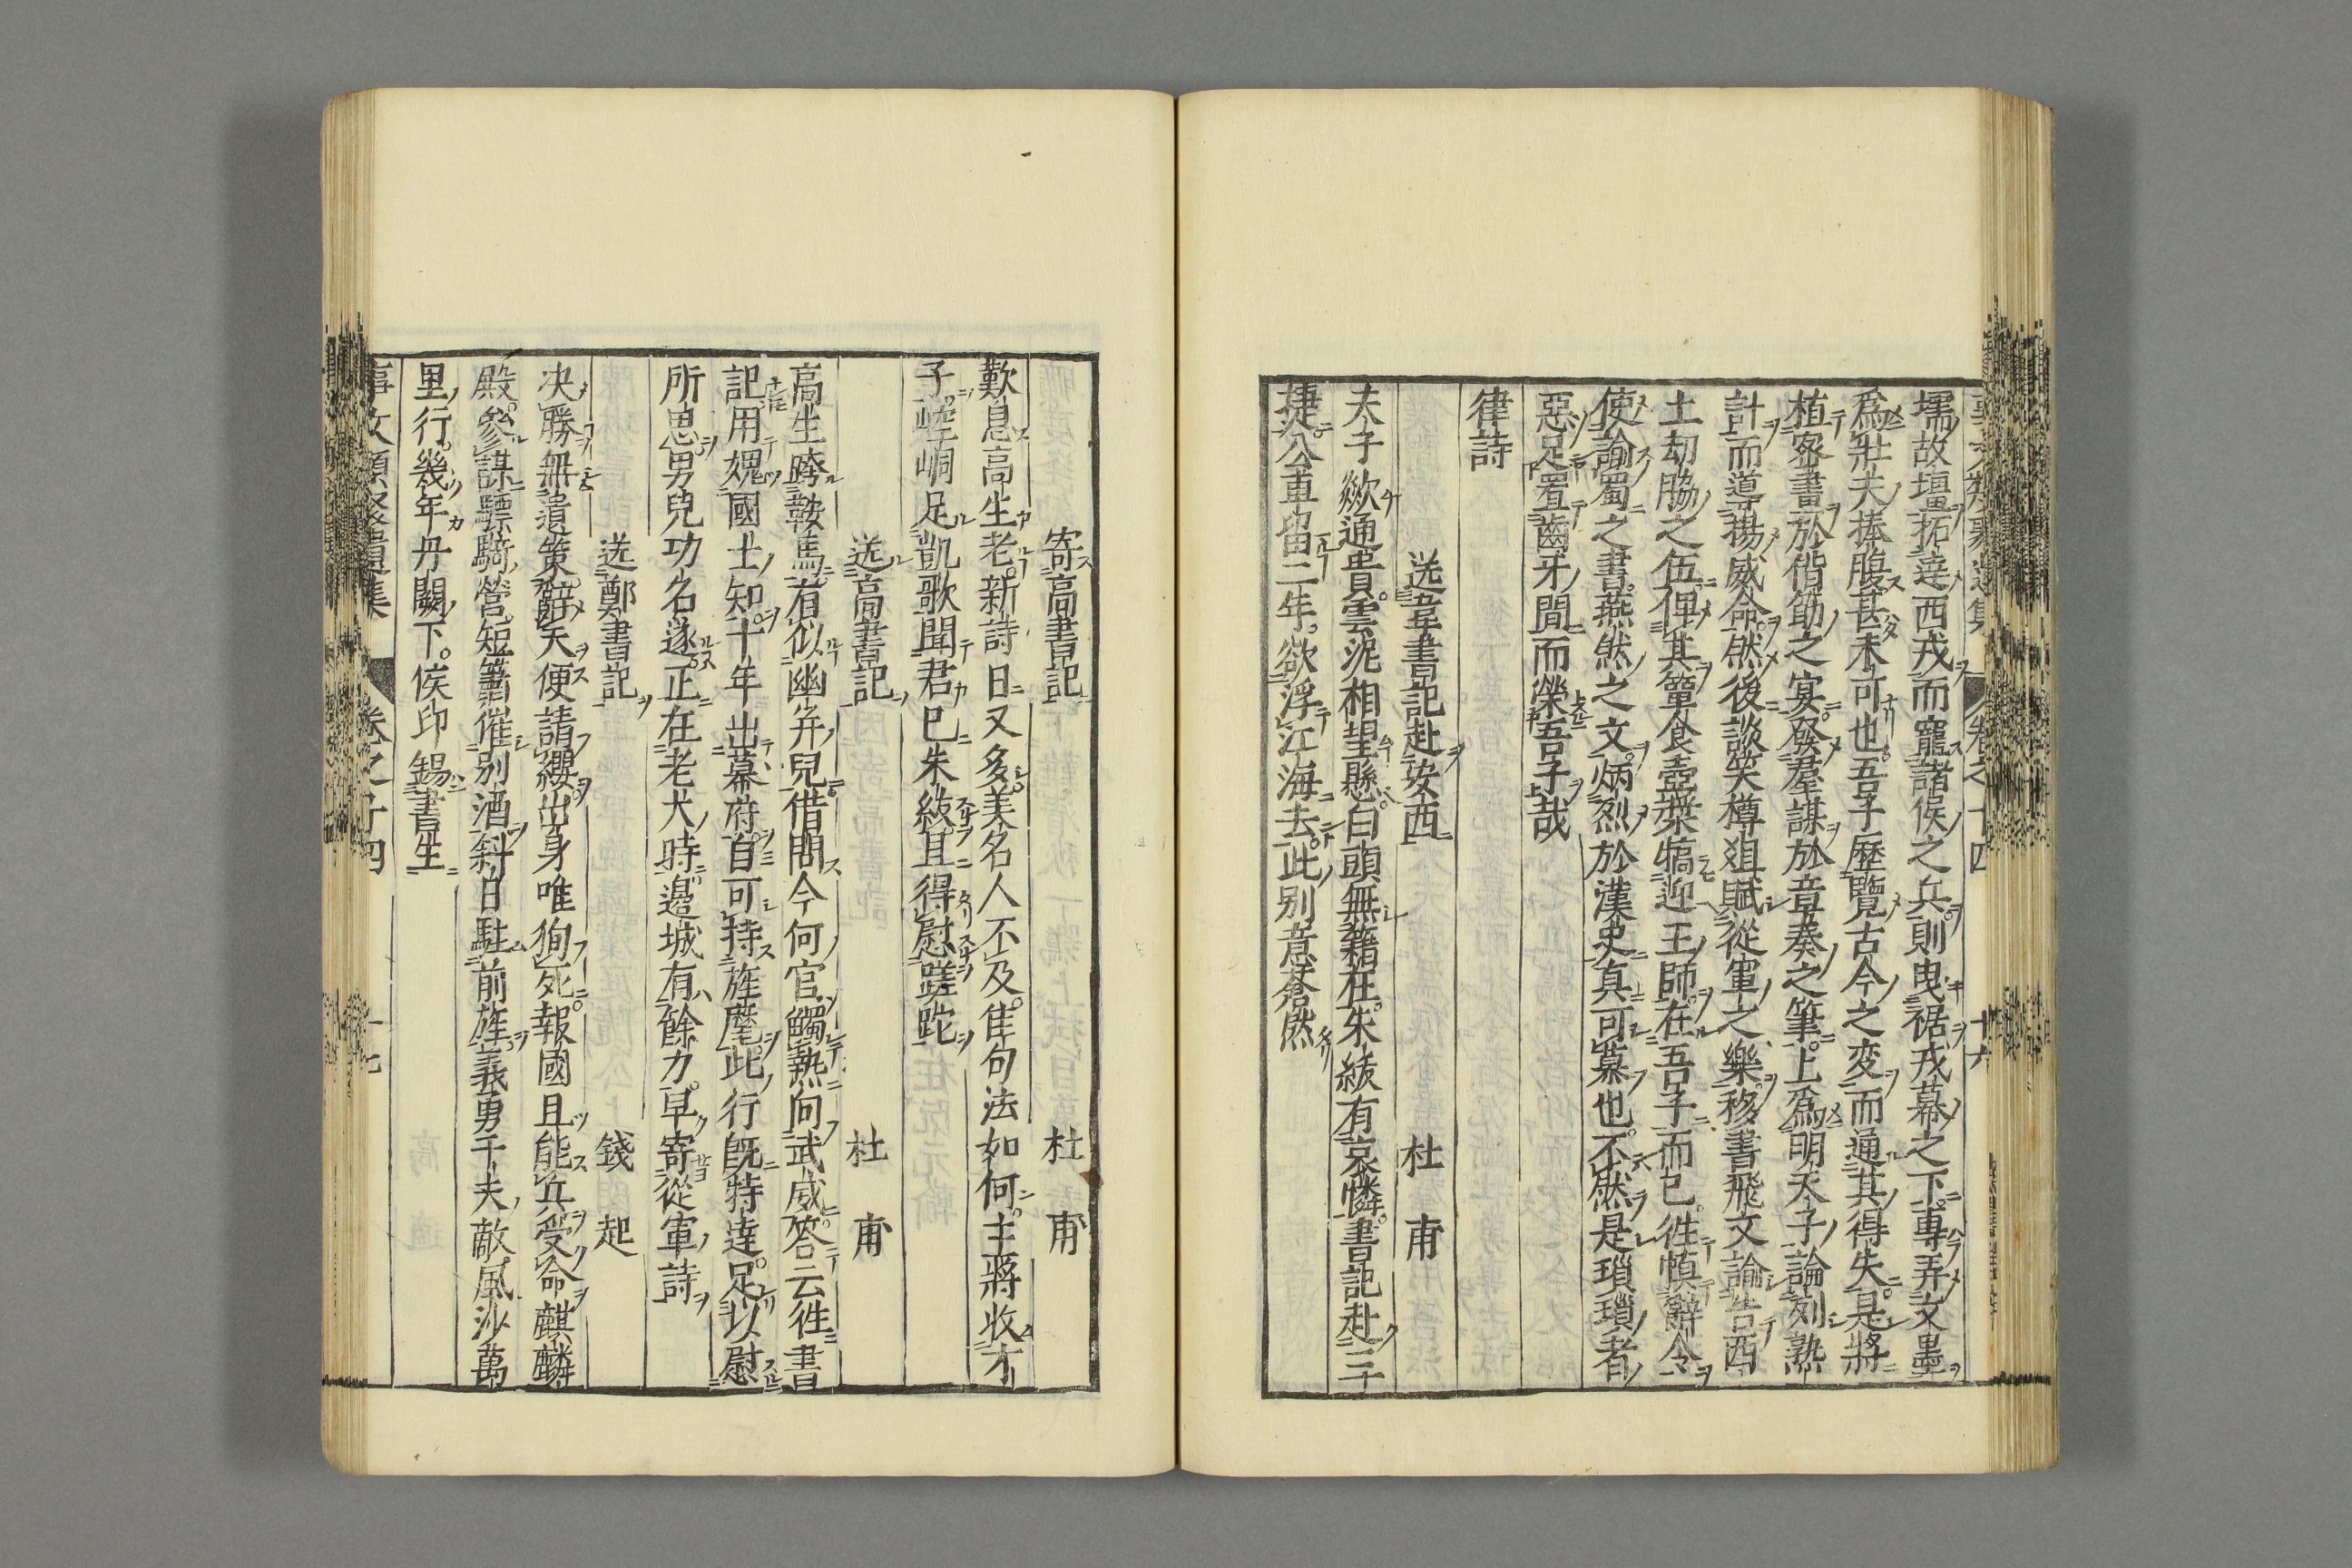 壖故壇拓達西戎而寵諸侯之兵則曳裾戎幕之下專弄文墨
爲壯夫捧腹甚未可也吾子歷覽古今之变而通其得失是將
植密畫於偕筯之宴發羣謀於章奏之筆上爲明天子論列熟
計而導揚威命然後談笑樽爼賦從軍之樂移書飛文諭告西
土劫脇之伍俾其簞食壺漿犒迎王師在吾子而已徃愼辭令
使諭蜀之書燕然之文炳烈於漢史真可慕也不然是瑣瑣者
惡足置齒牙間而榮吾子哉
律詩
送韋書記赴安西 杜甫
夫子歘通貴雲泥相望懸白頭無籍在朱紱有哀憐書記赴三
捷公車留二年欲浮江海去此别意蒼然
寄高書記 杜甫
歎息高生老新詩日又多美名人不及佳句法如何主將收才
子崆峒足凱歌聞君已朱紱且得慰蹉跎
送高書記 杜甫
高生跨鞍馬有似幽并兒借問今何官觸熱向武威答云徃書
記用媿國士知十年出幕府自可持旌麾此行旣特達足以慰
所思男兒功名遂正在老大時邉城有餘力早寄從軍詩
送鄭書記 錢起
决勝無遺策辭天便請纓出身唯狥死報國且能兵受命麒麟
殿參謀驃騎營短簫催别酒斜日駐前旌義勇千夫敵風沙萬
里行幾年丹闕下侯印錫書生
事文類聚遺集 卷之十四